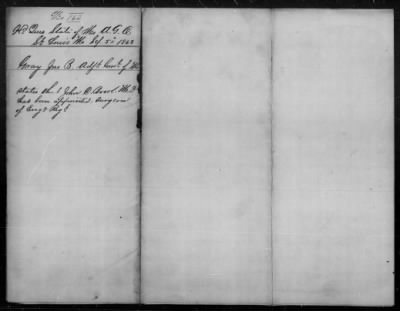 No 162
Hd Qrs State of Mo A.G.O.
St Louis Mo Sep. 5" 1863
Gray Jno B. Adjt Genl of Mo
states that John D. M.D.
has been appointed surgeon
of Eng's Regt